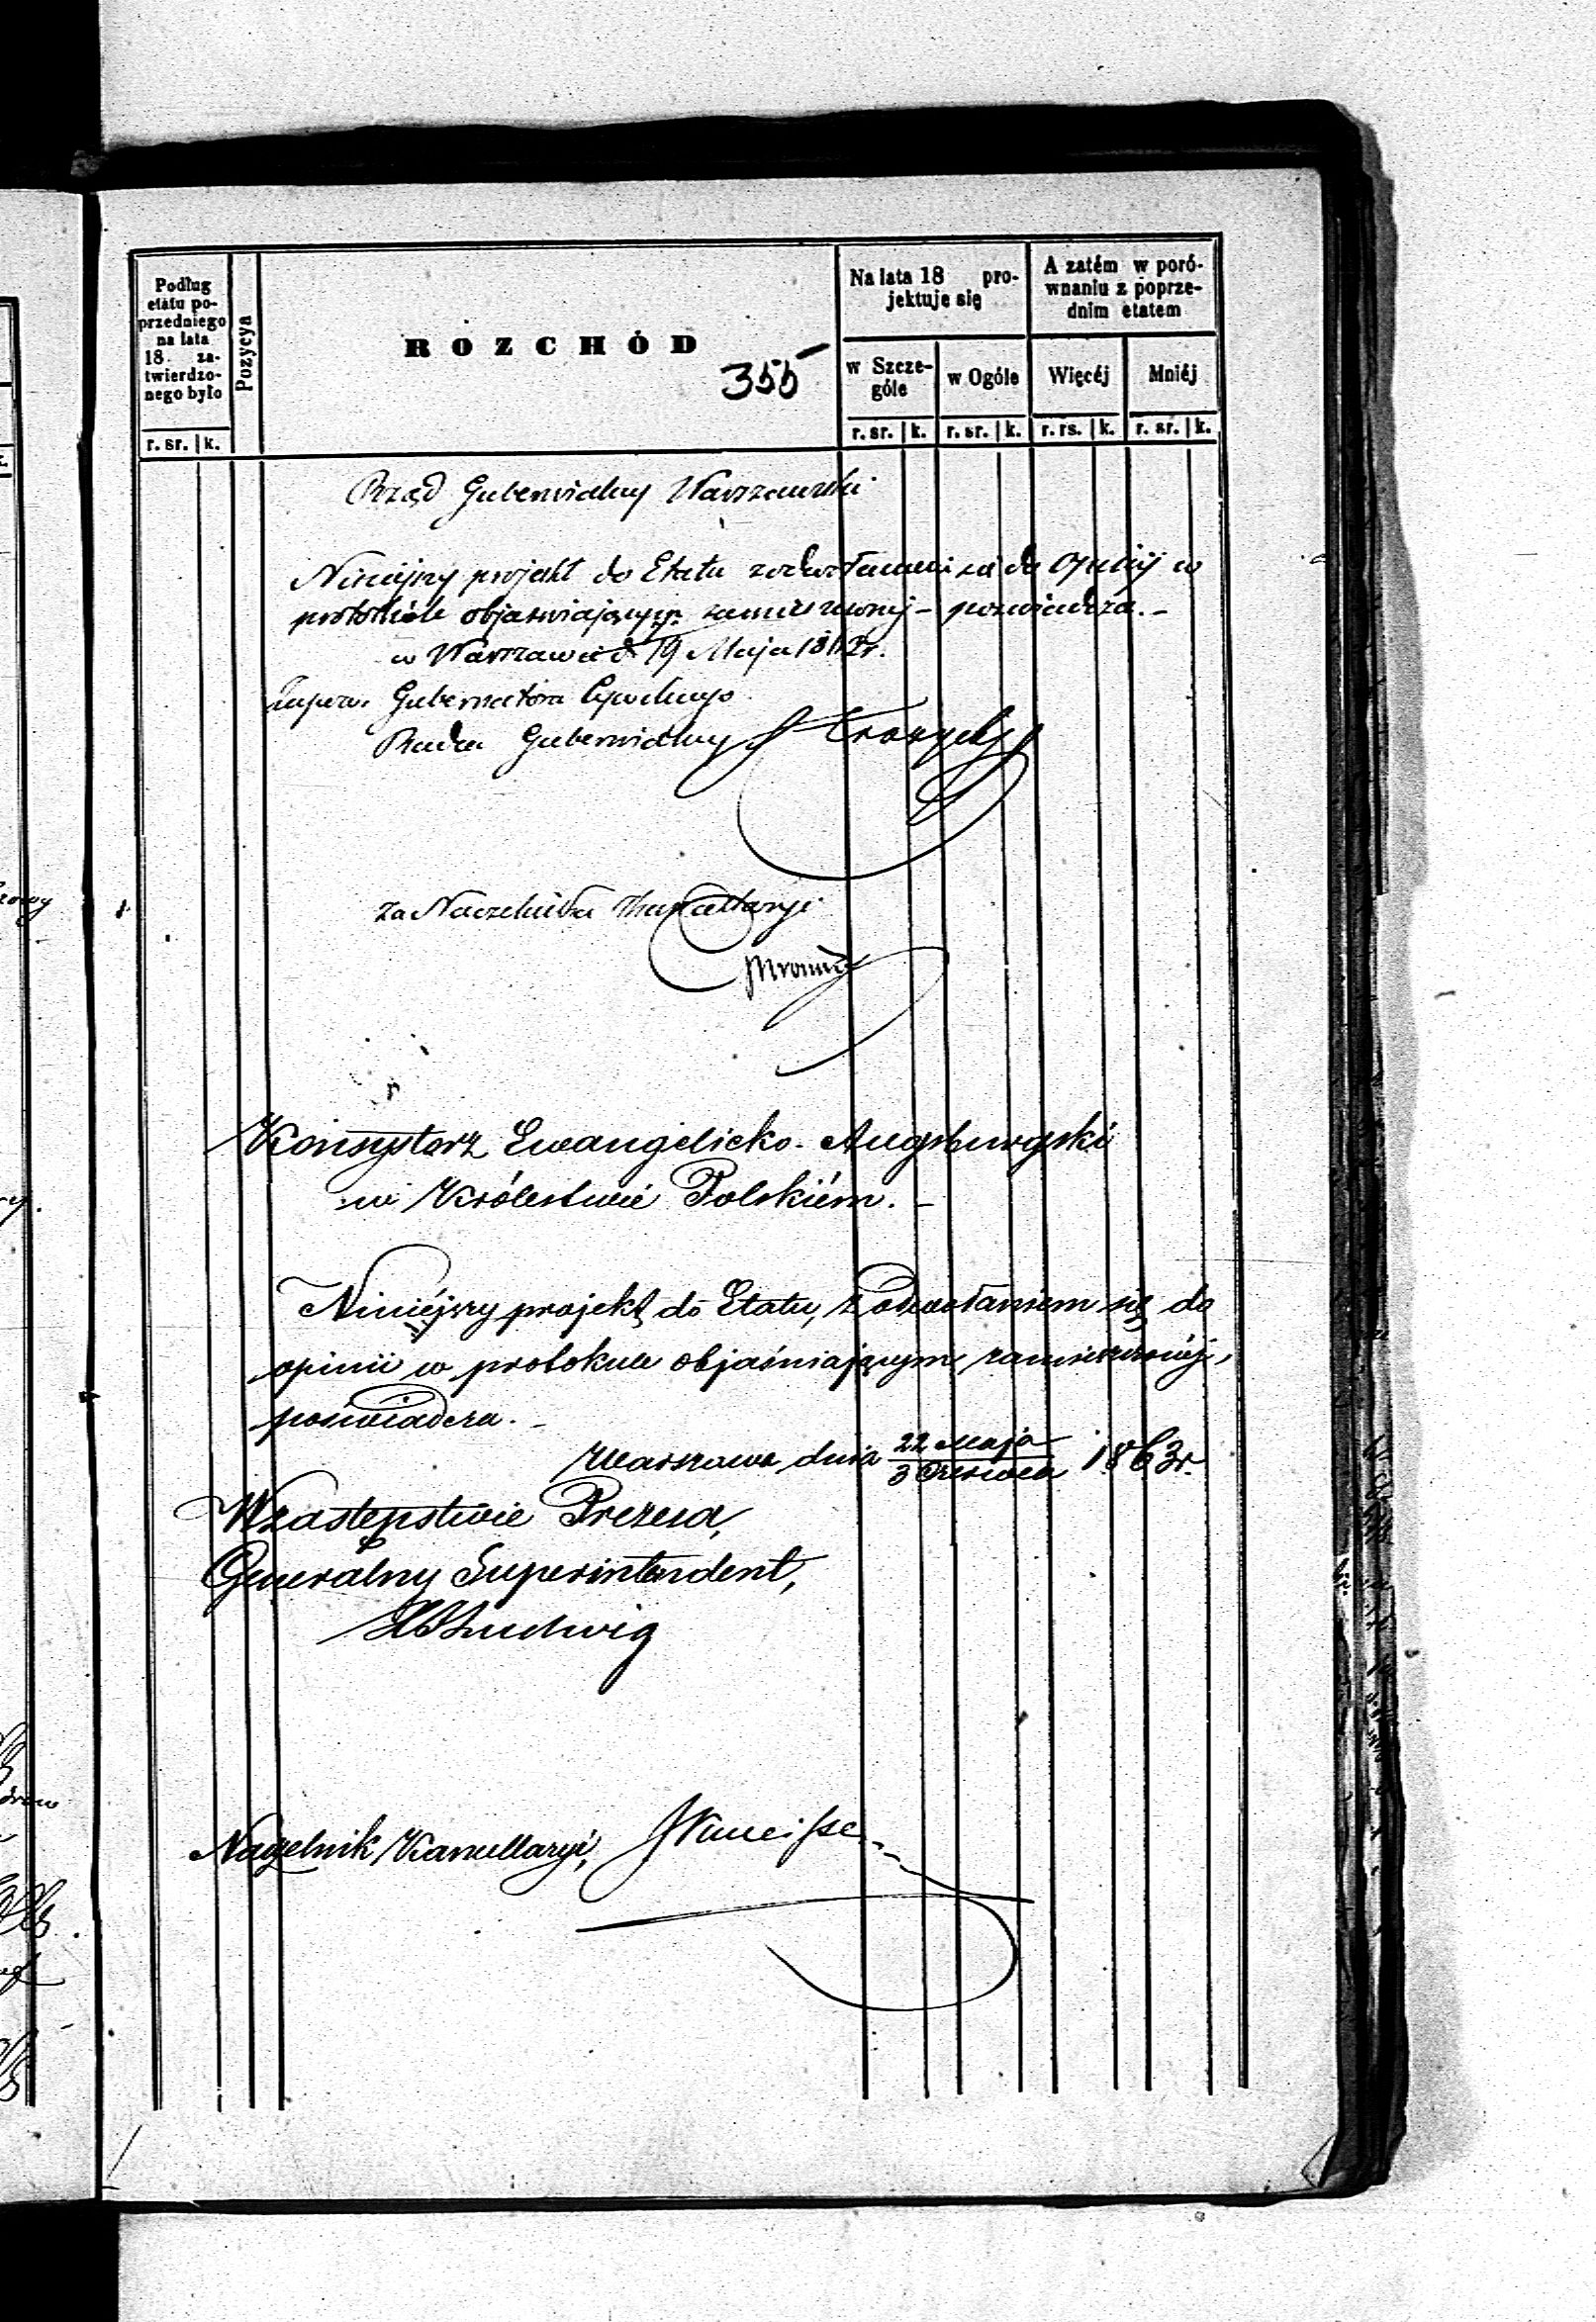 Podług
etatu po-
przedniego
na lata
18 . za-
twierdzo-
nego było
r. sr. k.
Pozycya
ROZCHÓD
355
Na lata 18 pro-
jektuje się
w Szcze-
góle
w Ogóle
r. sr. k. r. sr. k.
A zatém w poró-
wnaniu z poprze-
dnim etatem
Więcéj
Mniéj
r. rs. k. r. sr. k.
Rząd Gubernialny Warszawski
Niniejszy projekt do Etatu z odwołaniem się do Opinij w
protokóle objasniającym zamieszczonej – poswiadcza. –
w Warszawie d. 19 Maja r.
Gubernatora Cywilnego
Radca Gubernialny
za Naczelnika Kancellaryi
Konsystorz Ewangelicko-Augsburgski
w Królestwie Polskiém. –
Niniéjszy projekt do Etatu, z odwołaniem się do
opinii w protokule objaśniającym, zamieszczonéj,
poświadcza. –
Warszawa dnia 22 Maja / 3 Czerwca 1863 r.
W zastępstwie Prezesa,
Generalny Superintendent,
Ludwig
Naczelnik Kancellaryi,